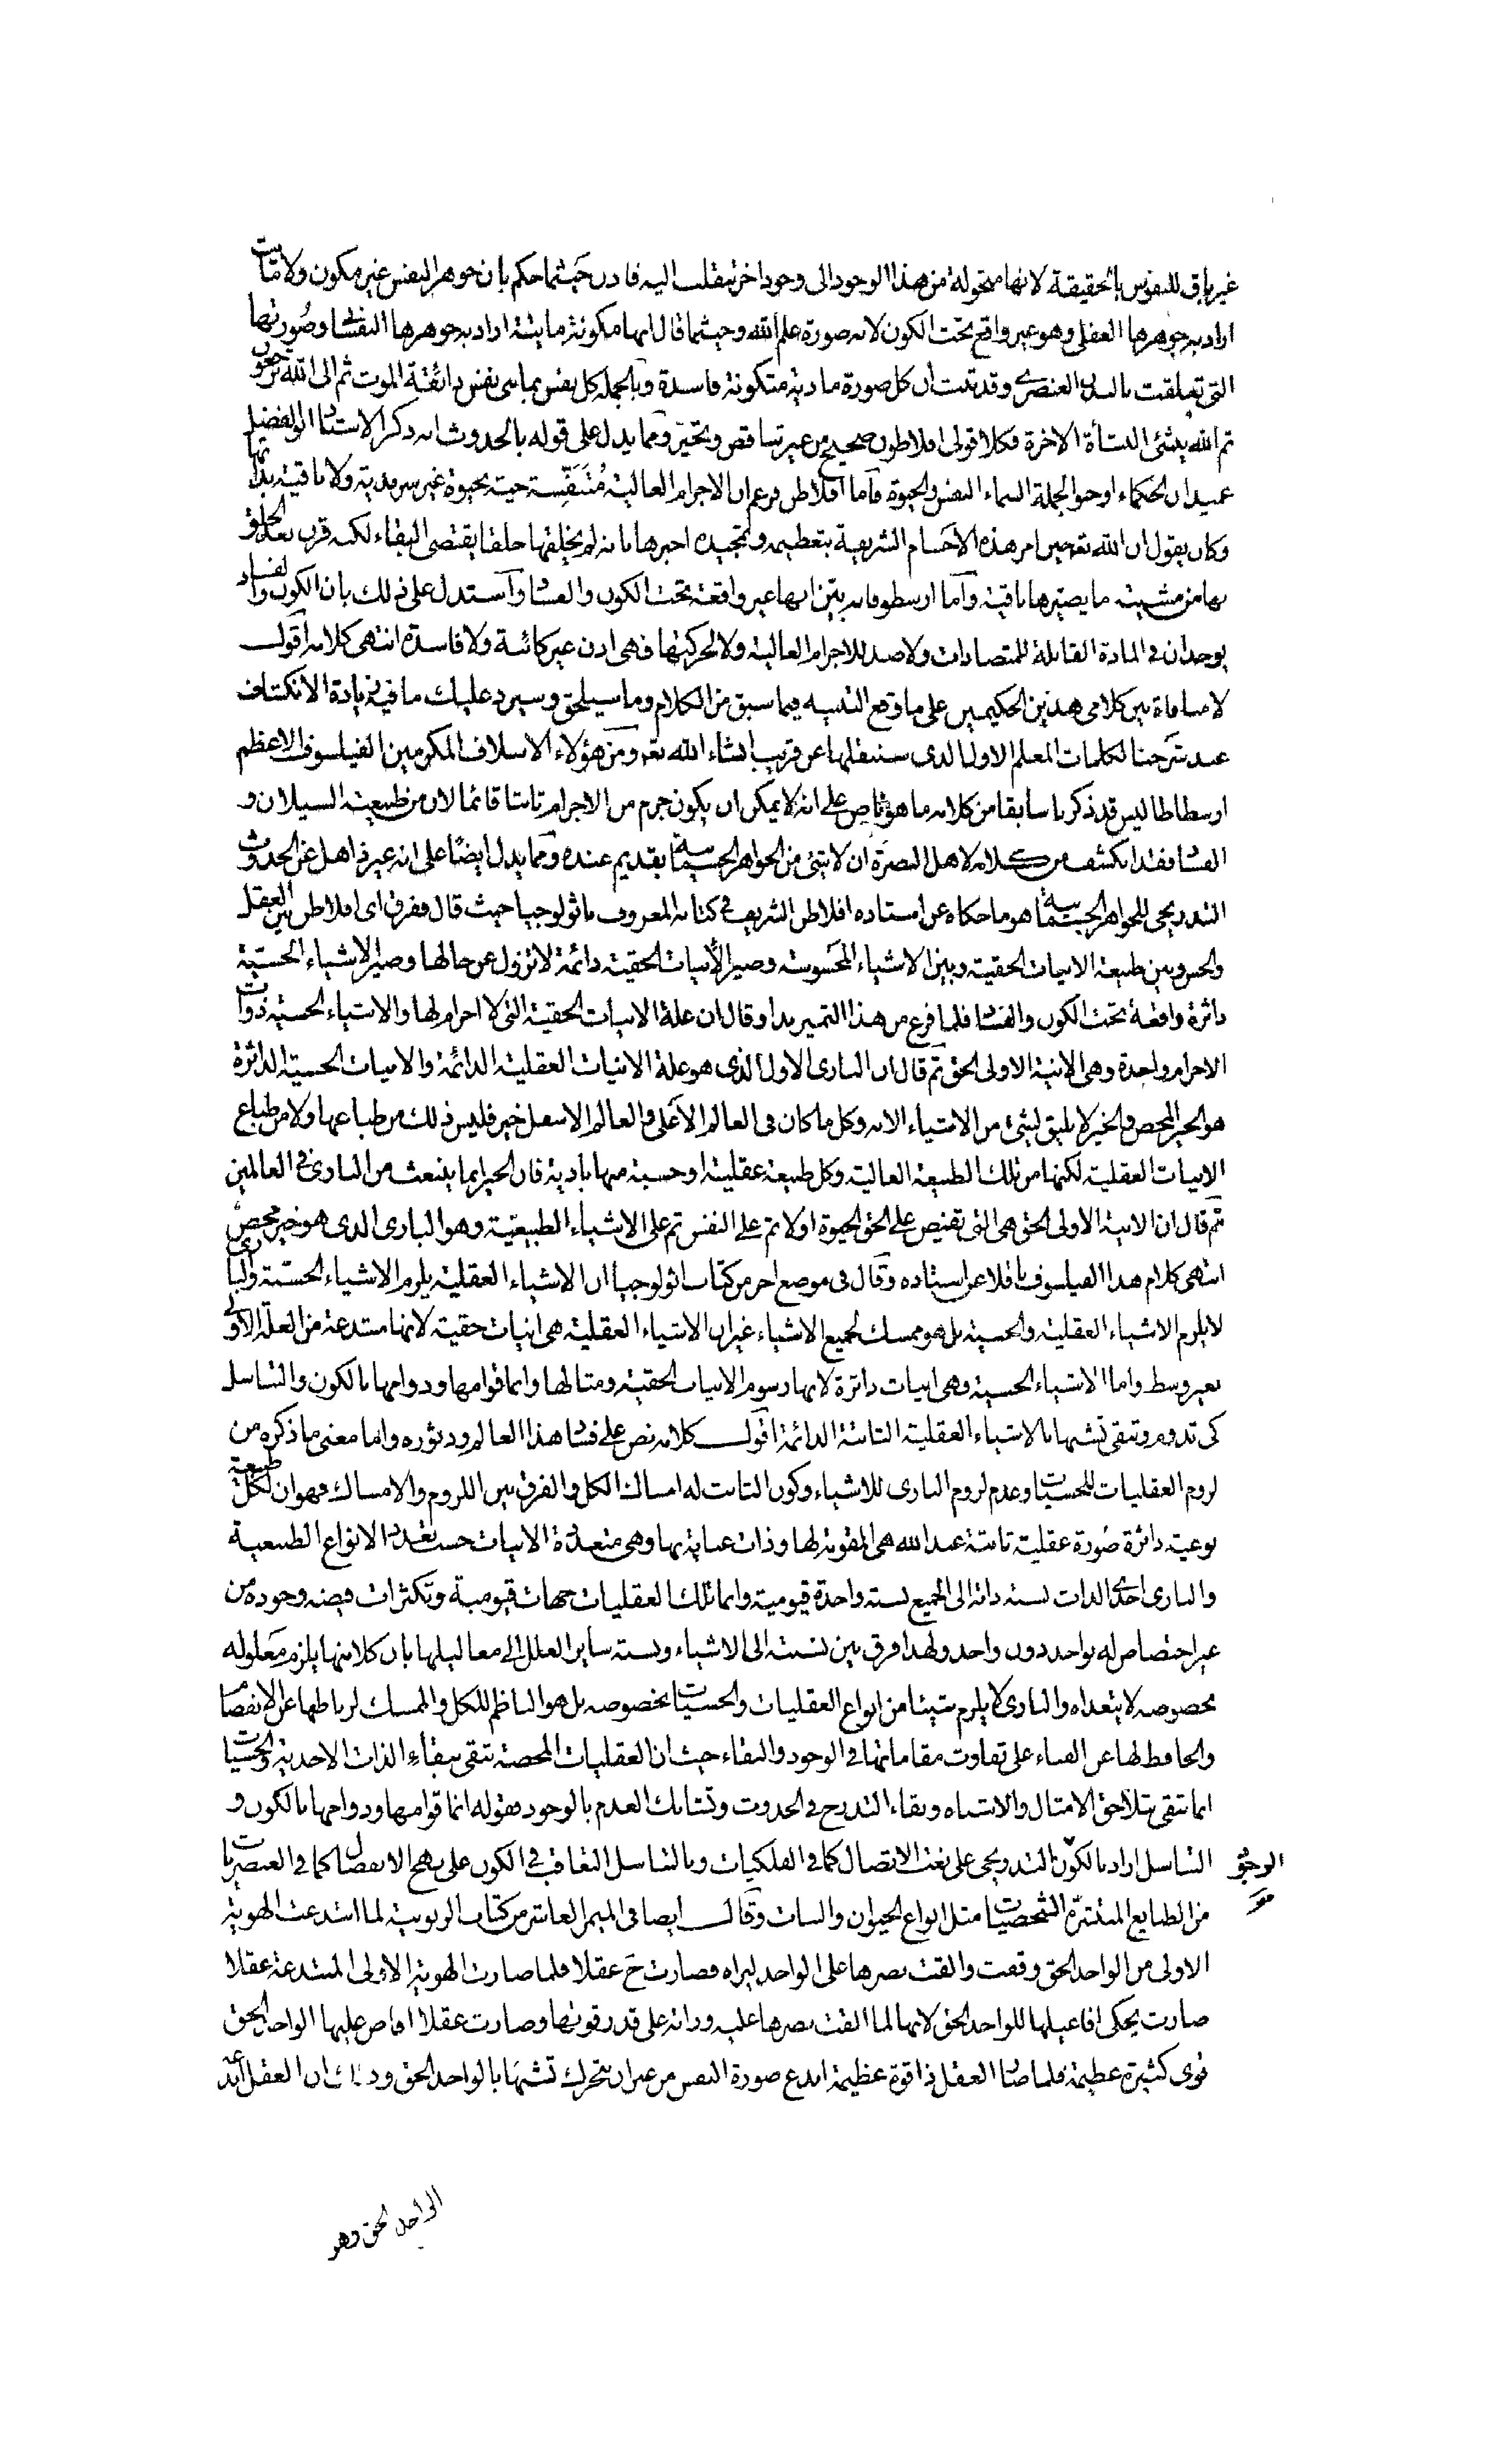 غير باق للنفوس بالحقيقة لانها متحولة من هذا الوجود الى وجود اخر تنقلب اليه فاذن حيثما حكم بان جوهر النفس غير مكون ولا مايت
اراد به جوهرها العقلى وهو غير واقع تحت الكون لانه صورة علم الله وحيثما قال انها مكونة مايتة اراد به جوهرها النفسانى وصورتها
التى تعلقت بالبدن العنصرى وقد ثبت ان كل صورة مادية متكونة فاسدة وبالجملة كل نفس بما هى نفس ذائقة الموت ثم الى الله ترجعون
ثم الله ينشئ النشأة الاخرة فكلا قولى افلاطون صحيح من غير تناقض وتحيّر ومما يدل على قوله بالحدوث انه ذكر الاستاد ابو الفضل
عميد ان الحكماء اوجبوا لجملة السماء النفس والحيوة فاما افلاطن يزعم ان الاجرام العالية مُتَنَفِّسة حية بحيوة غير سرمدية ولا باقية بذاتها
وكان يقول ان الله تع حين امر هذه الاجسام الشريفة بتعظيمه وتمجيده اخبرها بانه لم يخلقها خلقا يقتضى البقاء لكنه قرن بعد الخلق
بها من مشيته ما يصيرها باقية وآما ارسطو فانه بيّن انها غير واقعة تحت الكون والفساد وآستدل على ذلك بان الكون والفساد
يوجدان فى المادة القابلة للمتضادات ولا ضد للاجرام العالية ولا لحركتها فهى اذن غير كائنة ولا فاسدة انتهى كلامه اقول
لا منافاة بين كلامى هذين الحكيمين على ما وقع التنبيه فيما سبق من الكلام وما سيلحق وسيرد عليك ما فيه زيادة الانكشاف
عند شرحنا لكلمات المعلم الاول الذى سننقلها عن قريب انشاء الله تع ومن هؤلاء الاسلاف المكرمين الفيلسوف الاعظم
ارسطاطاليس قد ذكرنا سابقا من كلامه ما هو ناص على انه لا يمكن ان يكون جرم من الاجرام ثابتا قائما لان من طبيعته السيلان و
الفساد فقد انكشف من كلامه لاهل البصرة ان لا شئ من الجواهر الجسمانية بقديم عنده ومما يدل ايضًا على انه غير ذاهل عن الحدوث
التدريجى للجواهر الجسمانية هو ما حكاه عن استاده افلاطن الشريف فى كتابه المعروف باثولوجيا حيث قال وفرق اى افلاطن بين العقل
والحس وبين طبيعة الانيات الحقية وبين الاشياء المحسوسة وصير الأنيات الحقية دائمة لا تزول عن حالها وصير الاشياء الحسيّة
داثرة واقعة تحت الكون والفساد فلما فرغ من هذا التميز بدا وقال ان علة الانيات الحقية التى لا اجرام لها والاشياء الحسية ذوات
الاجرام واحدة وهى الانية الاولى الحق ثم قال ان البارى الاول الذى هو علة الانيات العقلية الدائمة والانيات الحسية الداثرة
هو الخير المحض والخير لا يليق بشئ من الاشياء الا به وكل ما كان فى العالم الأعلى والعالم الاسفل خير فليس ذلك من طباعها ولا من طباع
الانيات العقلية لكنها من تلك الطبيعة العالية وكل طبيعة عقلية او حسية منها بادية فان الخير انما ينبعث من البارى فى العالمين
ثم قال ان الانية الاولى الحق هى التى تفيض على العقل الحيوة اولا ثم على النفس ثم على الاشياء الطبيعيّة وهو البارى الذى هو خير محض
انتهى كلام هذا الفيلسوف ناقلا عن استاده وقال فى موضع اخر من كتاب اثولوجيا ان الاشياء العقلية يلزم الاشياء الحسّية والبارى
لا يلزم الاشياء العقلية والحسية بل هو ممسك لجميع الاشياء غير ان الاشياء العقلية هى انيات حقية لانها مبتدعة من العلة الاولى
بغير وسط واما الاشياء الحسية وهى انيات داثرة لانها رسوم الانيات الحقية ومثالها وانما قوامها ودوامها بالكون والتناسل
كى تدوم وتبقى تشبها بالاشياء العقلية الثابتة الدائمة اقول كلامه نص على فساد هذا العالم ودثوره واما معنى ما ذكره من
لزوم العقليات للحسيات وعدم لزوم البارى للاشياء وكون الثابت له امساك الكل والفرق بين اللزوم والامساك فهو ان لكل طبيعة
نوعية داثرة صُورة عقلية ثابتة عند الله هى المقومة لها وذات عناية بها وهى متعددة الانيات حسب تعدد الانواع الطبيعية
والبارى احدى الذات نسبة ذاته الى الجميع نسبة واحدة قيومية وانما تلك العقليات جهات قيومية وتكثرات فيضه وجوده من
غير اختصاص له بواحد دون واحد ولهذا فرق بين نسبته الى الاشياء ونسبة سائر العلل الى معاليلها بان كلا منها يلزم معلوله
بخصوصه لا يتعداه والبارى لا يلزم شيئا من انواع العقليات والحسيات بخصوصه بل هو الناظم للكل والممسك لرباطها عن الانفصام
والحافظ لها عن الفناء على تفاوت مقاماتها فى الوجود والبقاء حيث ان العقليات المحضة تبقى ببقاء الذات الاحدية والحسيات
انما تبقى بتلاحق الامثال والاشباه وبقاء التدرج فى الحدوث وتشابك العدم بالوجود فقوله انما قوامها ودوامها بالكون و
التناسل اراد بالكون التدريجى على نعت الاتصال كما فى الفلكيات وبالتناسل التعاقب فى الكون على نهج الانفصال كما فى العنصريات
من الطبايع المنتشرة الشخصيات مثل انواع الحيوان والنبات وقال ايضا فى الميمر العاشر من كتاب الربوبية لما ابتدعت الهوية
الاولى من الواحد الحق وقفت والقت بصرها على الواحد ليراه فصارت ح عقلا فلما صارت الهوية الاولى المبتدعة عقلا
صارت يحكى افاعيلها للواحد الحق لانها لما القت بصرها عليه وراته على قدر قوتها وصارت عقلا افاض عليها الواحد الحق
قوى كثيرة عظيمة فلما صار العقل ذا قوة عظيمة ابدع صورة النفس من غير ان يتحرك تشبّها بالواحد الحق وذلك ان العقل ابدعه
الواحد الحق وهو